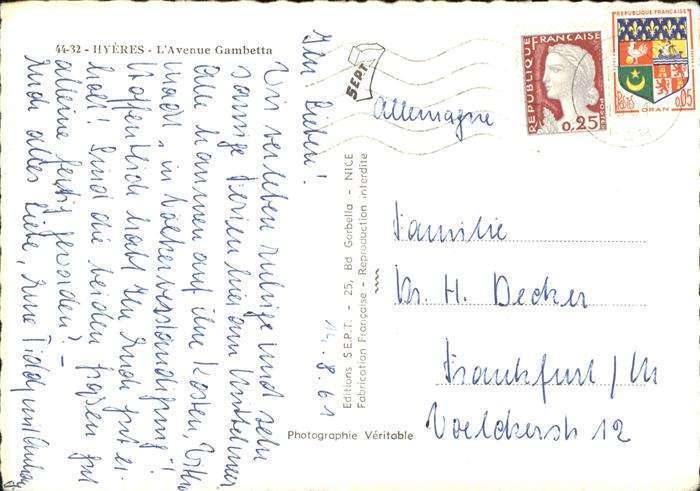 44-32 - HYÈRES - L'Avenue Gambetta
Ihr Lieben!
Wir verleben ruhige und sehr
sonnige Ferien hier am Mittelmeer
Alle kommen auf ihre Kosten,
macht „in Völkerverständigung"!
Hoffentlich habt Ihr Euch gut er-
holt! Sind die beiden großen gut
alleine fertig geworden? -
Euch alles Liebe, Eure
14.8.61
SEPT
Editions S.E.P.T. - 25, Bd Gorbella - NICE
Fabrication Française - Reproduction interdite
Photographie Véritable
REPUBLIQUE FRANCAISE
0,25
REPUBLIQUE FRANÇAISE
0,05
ORAN
Allemagne
Familie
Dr. H. Decker
Frankfurt/M
Voelckerstr 12